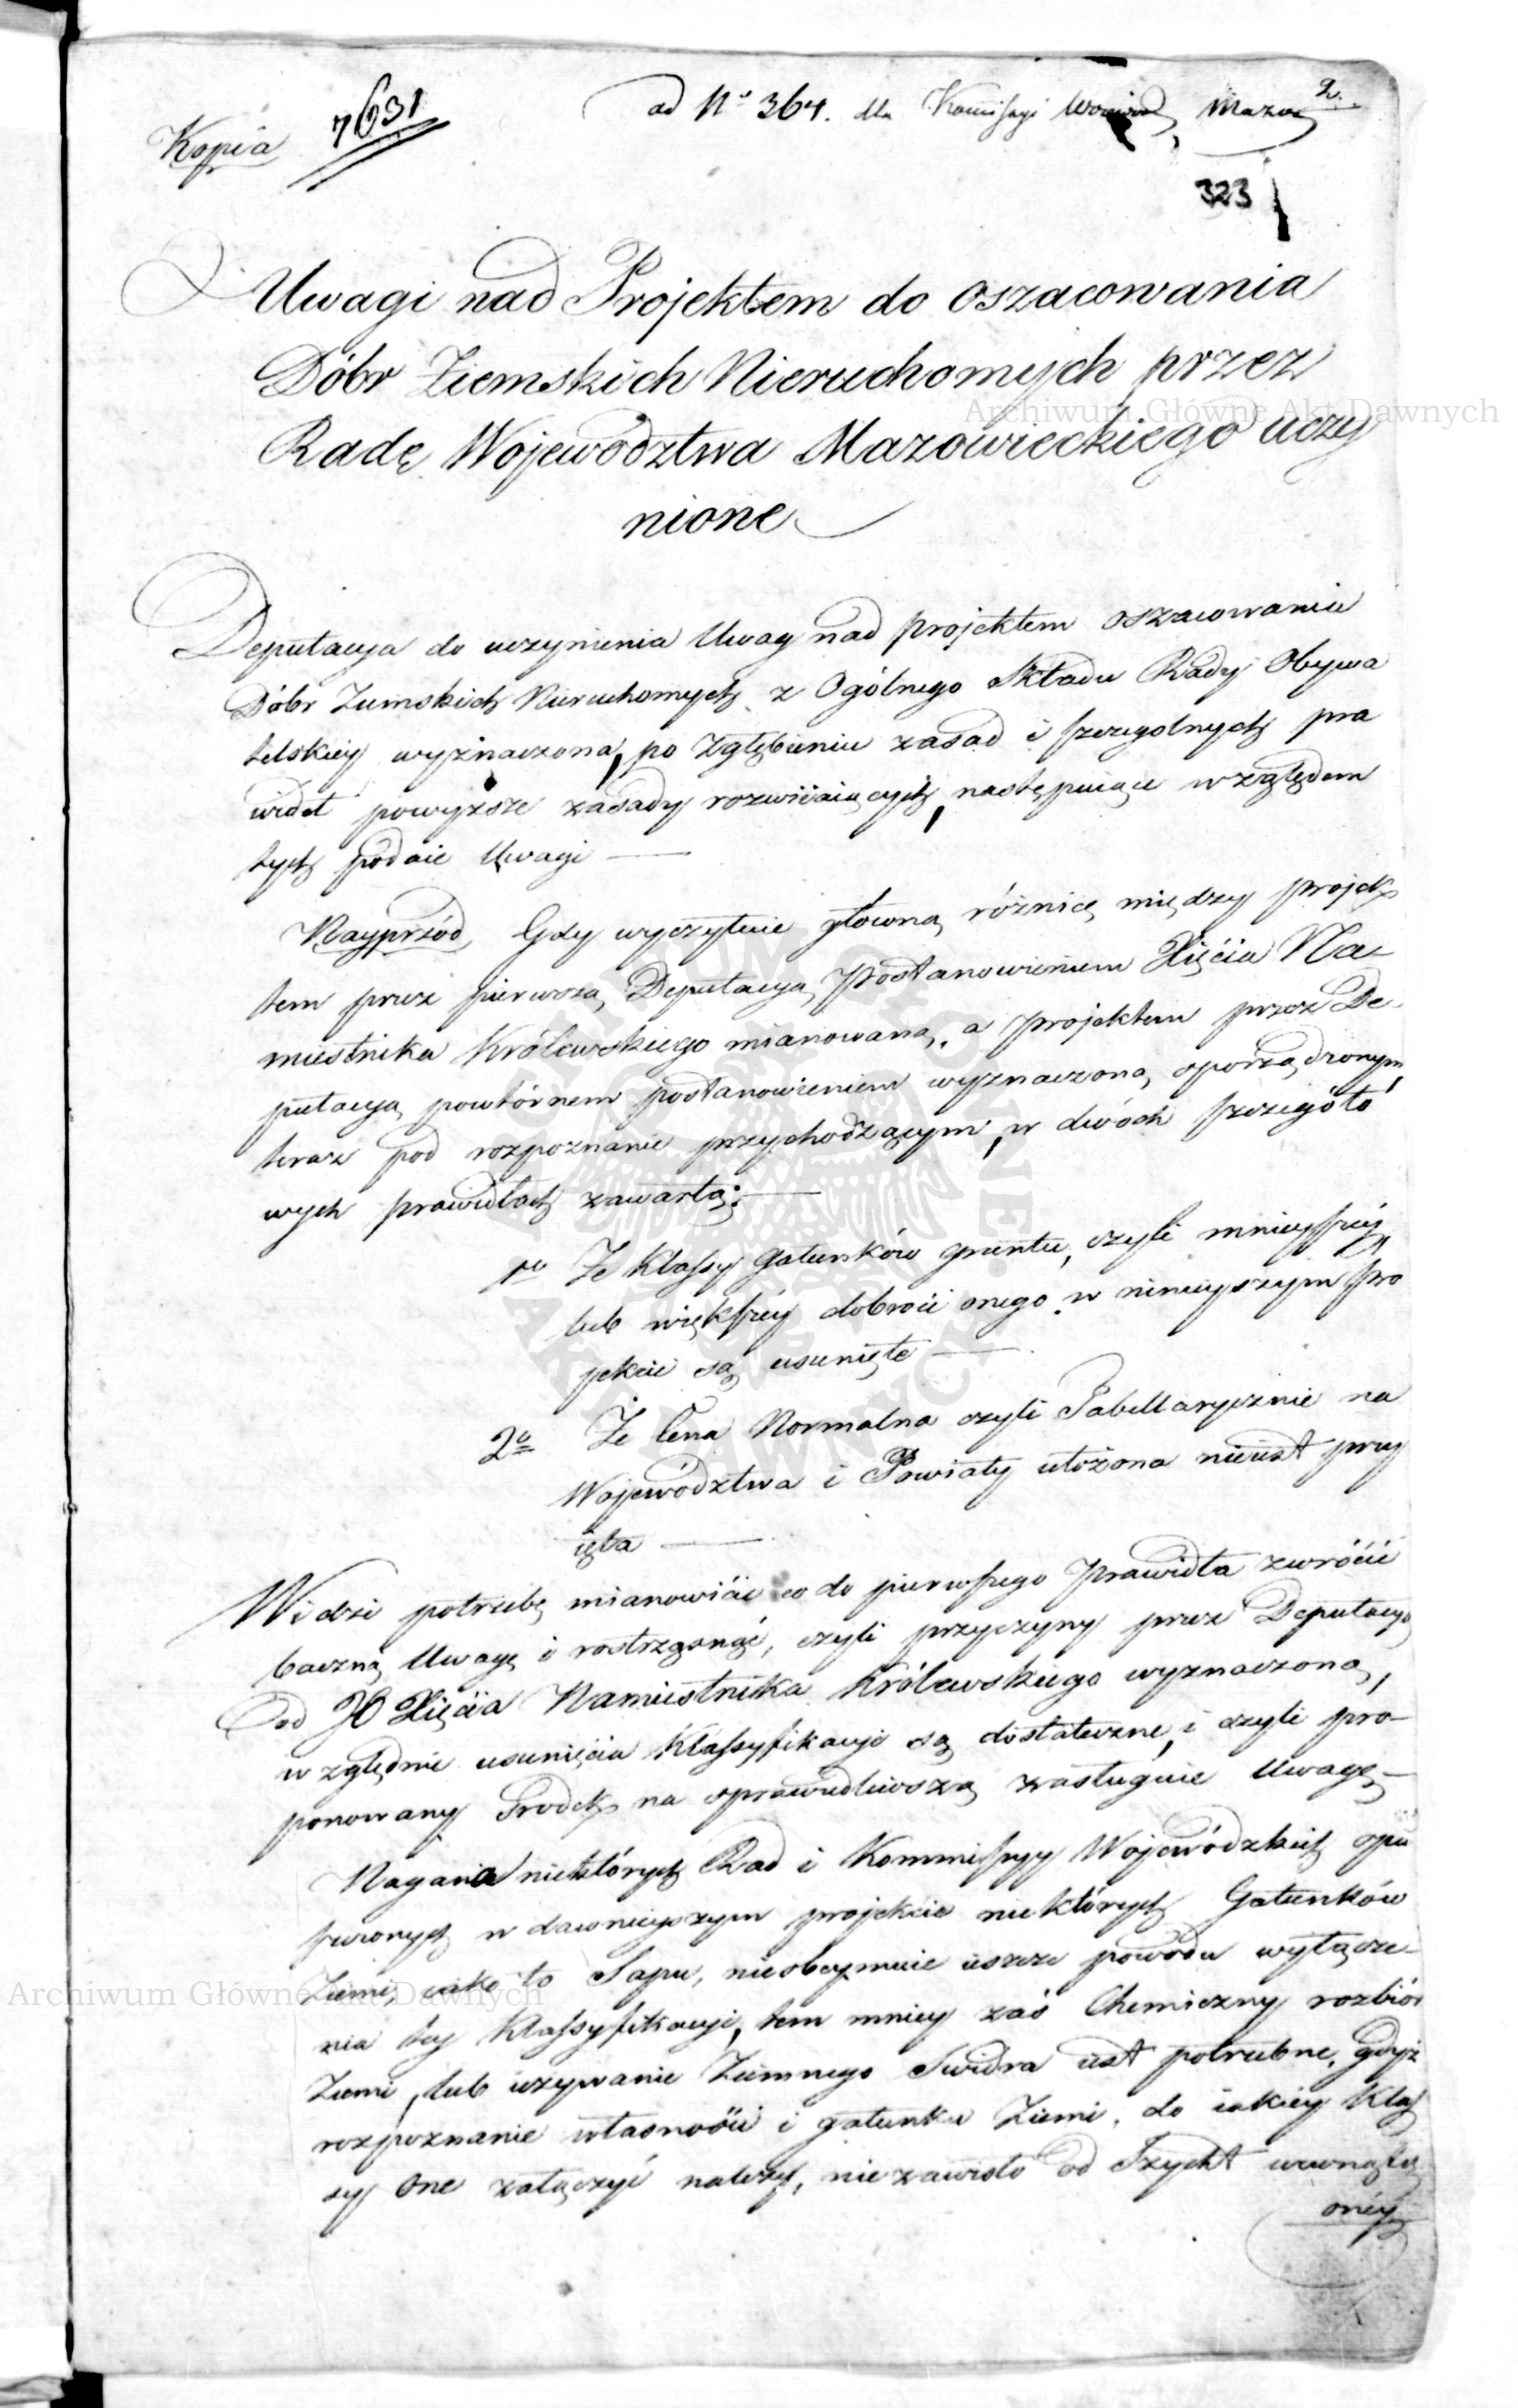 Kopia 7631 ad No 364. dla Komissyi Woiewod Mazow 2.
323
Uwagi nad Projektem do oszacowania
Dóbr Ziemskich Nieruchomych przez
Radę Województwa Mazowieckiego uczy
nione
Deputacya do uczynienia Uwag nad projektem oszacowania
Dóbr Ziemskich Nieruchomych z Ogólnego Składu Rady Obywa
telskiey wyznaczona, po zgłębieniu zasad i szczegolnych pra
wideł powyższe zasady rozwiiaiących, następuiące względem
tych podaie Uwagi —
Nayprzód Gdy wyczytuie główną różnicę między projek
tem przez pierwszą Deputacyą Postanowieniem Xięcia Na-
miestnika Królewskiego mianowaną, a projektem przez De
putacyą powtórnem postanowieniem wyznaczoną sporządzonym,
teraz pod rozpoznanie przychodzącym, w dwóch szczegóło
wych prawidłach zawartą: —
1o Że Klassy Gatunków gruntu, czyli mnieyszéy
lub większéy dobroci onego w ninieyszym Pro
jekcie są usunięte —
2o Że Cena Normalna czyli Tabellarycznie na
Województwa i Powiaty ułożona nieiest przy
ięta —
Widzi potrzebę mianowicie co do pierwszego Prawidła zwrócić
baczną Uwagę i rostrząsnąć, czyli przyczyny przez Deputacyą
Od JO Xięcia Namiestnika Królewskiego wyznaczoną,
względnie usunięcia Klassyfikacyi są dostateczne, i czyli pro-
ponowany Srodek na sprawiedliwszą zasługuie Uwagę —
Nagana niektórych Rad i Kommissyy Wojewódzkich opu
szczonych w dawnieyszym projekcie niektórych Gatunków
Ziemi, iako to Sapu, nieobeymuie ieszcze powodu wyłącze-
nia tey Klassyfikacyi, tem mniey zaś Chemiczny rozbiór
Ziemi, lub uzywanie Ziemnego Swidra iest potrzebne, gdyż
rozpoznanie własności i gatunku Ziemi, do iakiey Klas
sy One załączyć należy, nie zawisło od Szycht wewnątrz
onéy
Archiwum Główne Akt Dawnych
Archiwum Główne Akt Dawnych
ARCHIWUM GŁÓWNE AKT DAWNYCH